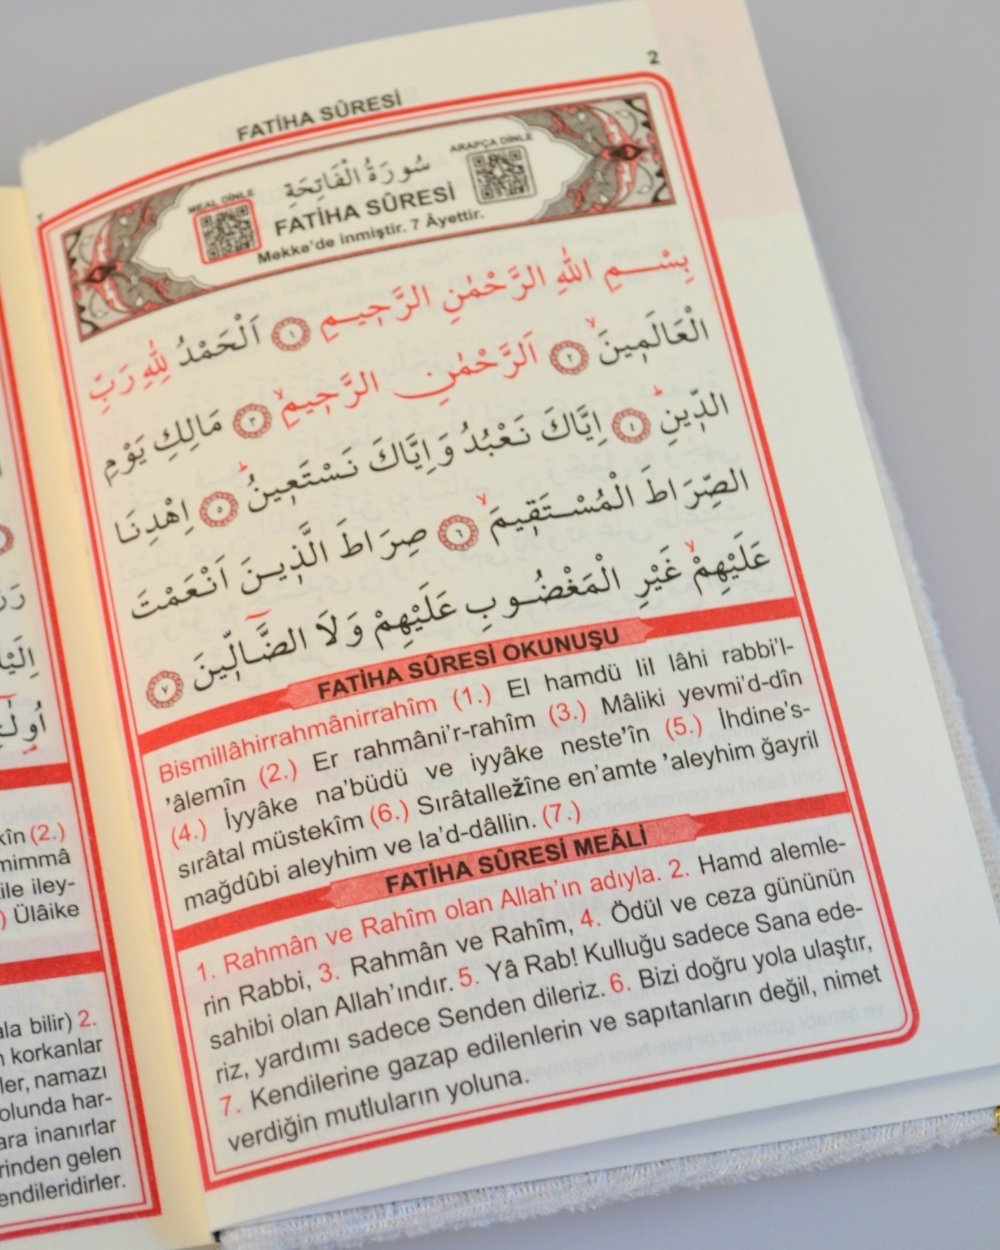 2
FATİHA SÛRESİ
MEAL DİNLE
ARAPÇA DİNLE
سُورَةُ الْفَاتِحَةِ
FATİHA SÛRESİ
Mekke'de inmiştir. 7 Âyettir.
بِسْــمِ اللّٰهِ الرَّحْمٰنِ الرَّح۪يـمِ ﴿١﴾ اَلْحَمْدُ لِلّٰهِ رَبِّ
الْعَالَم۪ينَۙ ﴿٢﴾ اَلرَّحْمٰنِ الرَّح۪يمِۙ ﴿٣﴾ مَالِكِ يَوْمِ
الدّ۪ينِۜ ﴿٤﴾ اِيَّاكَ نَعْبُدُ وَاِيَّاكَ نَسْتَع۪ينُۜ ﴿٥﴾ اِهْدِنَا
الصِّرَاطَ الْمُسْتَق۪يمَۙ ﴿٦﴾ صِرَاطَ الَّذ۪ينَ اَنْعَمْتَ
عَلَيْهِمْۙ غَيْرِ الْمَغْضُوبِ عَلَيْهِمْ وَلَا الضَّٓالّ۪ينَ ﴿٧﴾
FATİHA SÛRESİ OKUNUŞU
Bismillâhirrahmânirrahîm (1.) El hamdü lil lâhi rabbi'l-
'âlemîn (2.) Er rahmâni'r-rahîm (3.) Mâliki yevmi'd-dîn
(4.) İyyâke na'büdü ve iyyâke neste'în (5.) İhdine's-
sırâtal müstekîm (6.) Sırâtalležîne en'amte 'aleyhim ğayril
mağdûbi aleyhim ve la'd-dâllin. (7.)
FATİHA SÛRESİ MEÂLİ
1. Rahmân ve Rahîm olan Allah'ın adıyla. 2. Hamd alemle-
rin Rabbi, 3. Rahmân ve Rahîm, 4. Ödül ve ceza gününün
sahibi olan Allah'ındır. 5. Yâ Rab! Kulluğu sadece Sana ede-
riz, yardımı sadece Senden dileriz. 6. Bizi doğru yola ulaştır,
7. Kendilerine gazap edilenlerin ve sapıtanların değil, nimet
verdiğin mutluların yoluna.
kîn (2.)
mimmâ
ile iley-
) Ülâike
ala bilir) 2.
korkanlar
ler, namazı
olunda har-
ara inanırlar
rinden gelen
endileridirler.